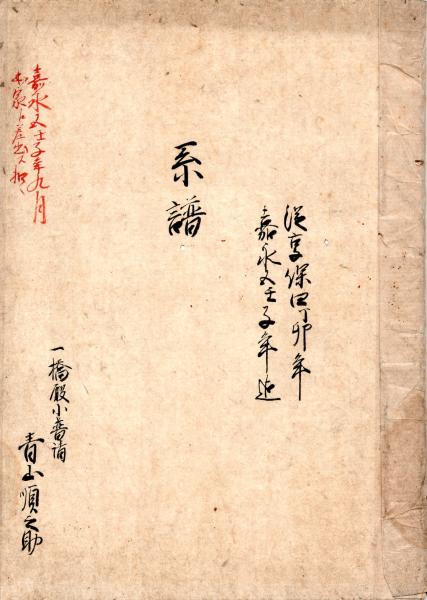 従享保四丁卯年
嘉永五壬子年迄
系譜
嘉永五壬子年九月
本家江差出ス扣
一橋殿小普請
青山順之助